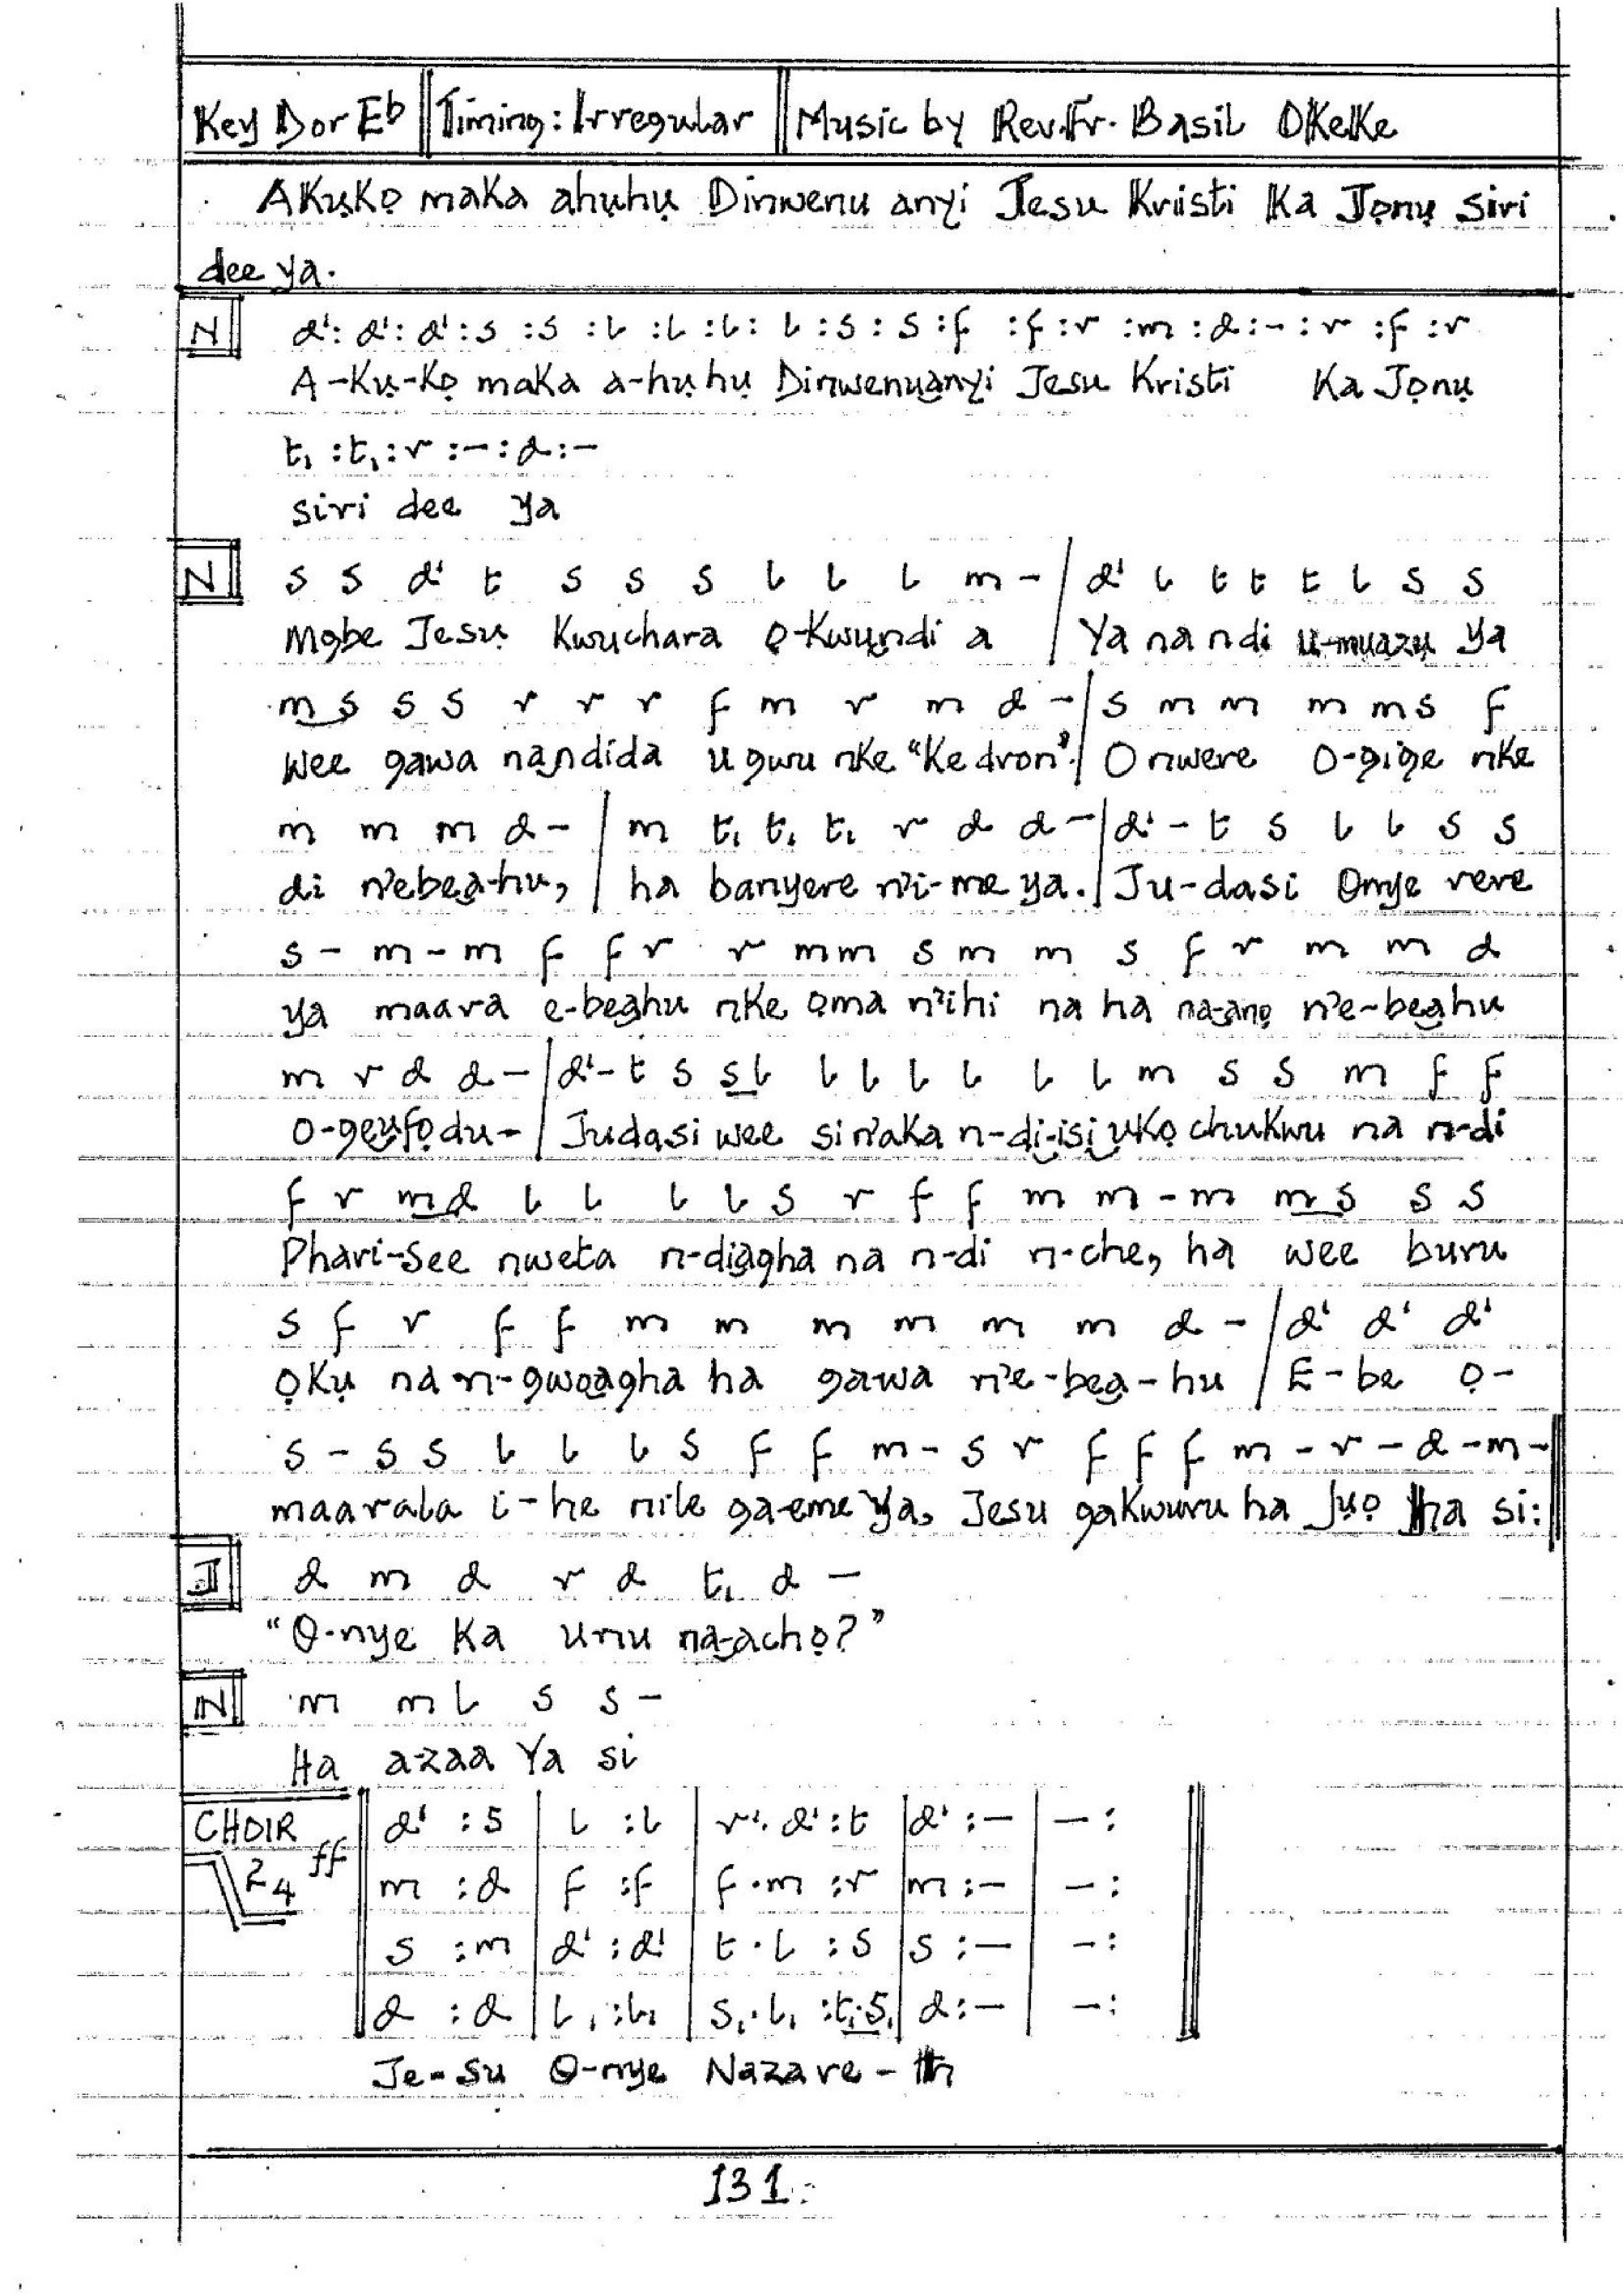 Key D or Eb Timing: Irregular Music by Rev. Fr. Basil Okeke
Akụkọ maka ahụhụ Dinwenu anyi Jesu Kristi ka Jọnụ siri
dee ya.
N d': d': d': s :s :l :l :l: l :s : s :f :f :r :m :d :- : r :f :r
A-kụ-kọ maka a-hụhụ Dinwenuanyi Jesu Kristi ka Jọnụ
t₁ :t₁ :r :- :d :-
siri dee ya
N s s d' t s s s l l l m - / d' l t t t l s s
Mgbe Jesụ kwuchara ọ-kwụndi a / Ya na ndi ụ-mụazụ ya
m s s s r r r f m r m d - / s m m m m s f
wee gawa nandida u gwu nke “Ke dron”. / O nwere O-gige nke
m m m d - / m t₁ t₁ t₁ r d d - / d' - t s l l s s
di n'ebeahu, / ha banyere n'i-me ya. / Ju-dasi Onye rere
s - m - m f f r r m m s m m s f r m m d
ya maara e-beahu nke ọma n'ihi na ha na-anọ n'e-beahu
m r d d - / d' - t s s l l l l l l l m s s m f f
o-geụfọdu - / Judasi wee sin'aka n-di-isi ukọ chukwu na n-di
f r m d l l l l s r f f m m - m m s s s
Phari-See nweta n-diagha na n-di n-che, ha wee buru
s f r f f m m m m m m d - / d' d' d'
ọkụ na n-gwọagha ha gawa n'e-bea-hu / E-be ọ-
s - s s l l l s f f m - s r f f f m - r - d - m -
maarala i-he nile ga-eme ya, Jesu gakwuru ha jụọ ha si:
J d m d r d t₁ d -
“Ọ-nye ka unu na-achọ?”
N m m l s s -
Ha azaa Ya si
CHOIR d' :s | l :l | r'. d' :t | d' :- | - :
2 4 ff m :d | f :f | f .m :r | m :- | - :
s :m | d' :d' | t . l :s | s :- | - :
d :d | l₁ :l₁ | s₁ . l₁ :t₁.s₁ | d :- | - :
Je-su Ọ-nye Nazare-th
131.